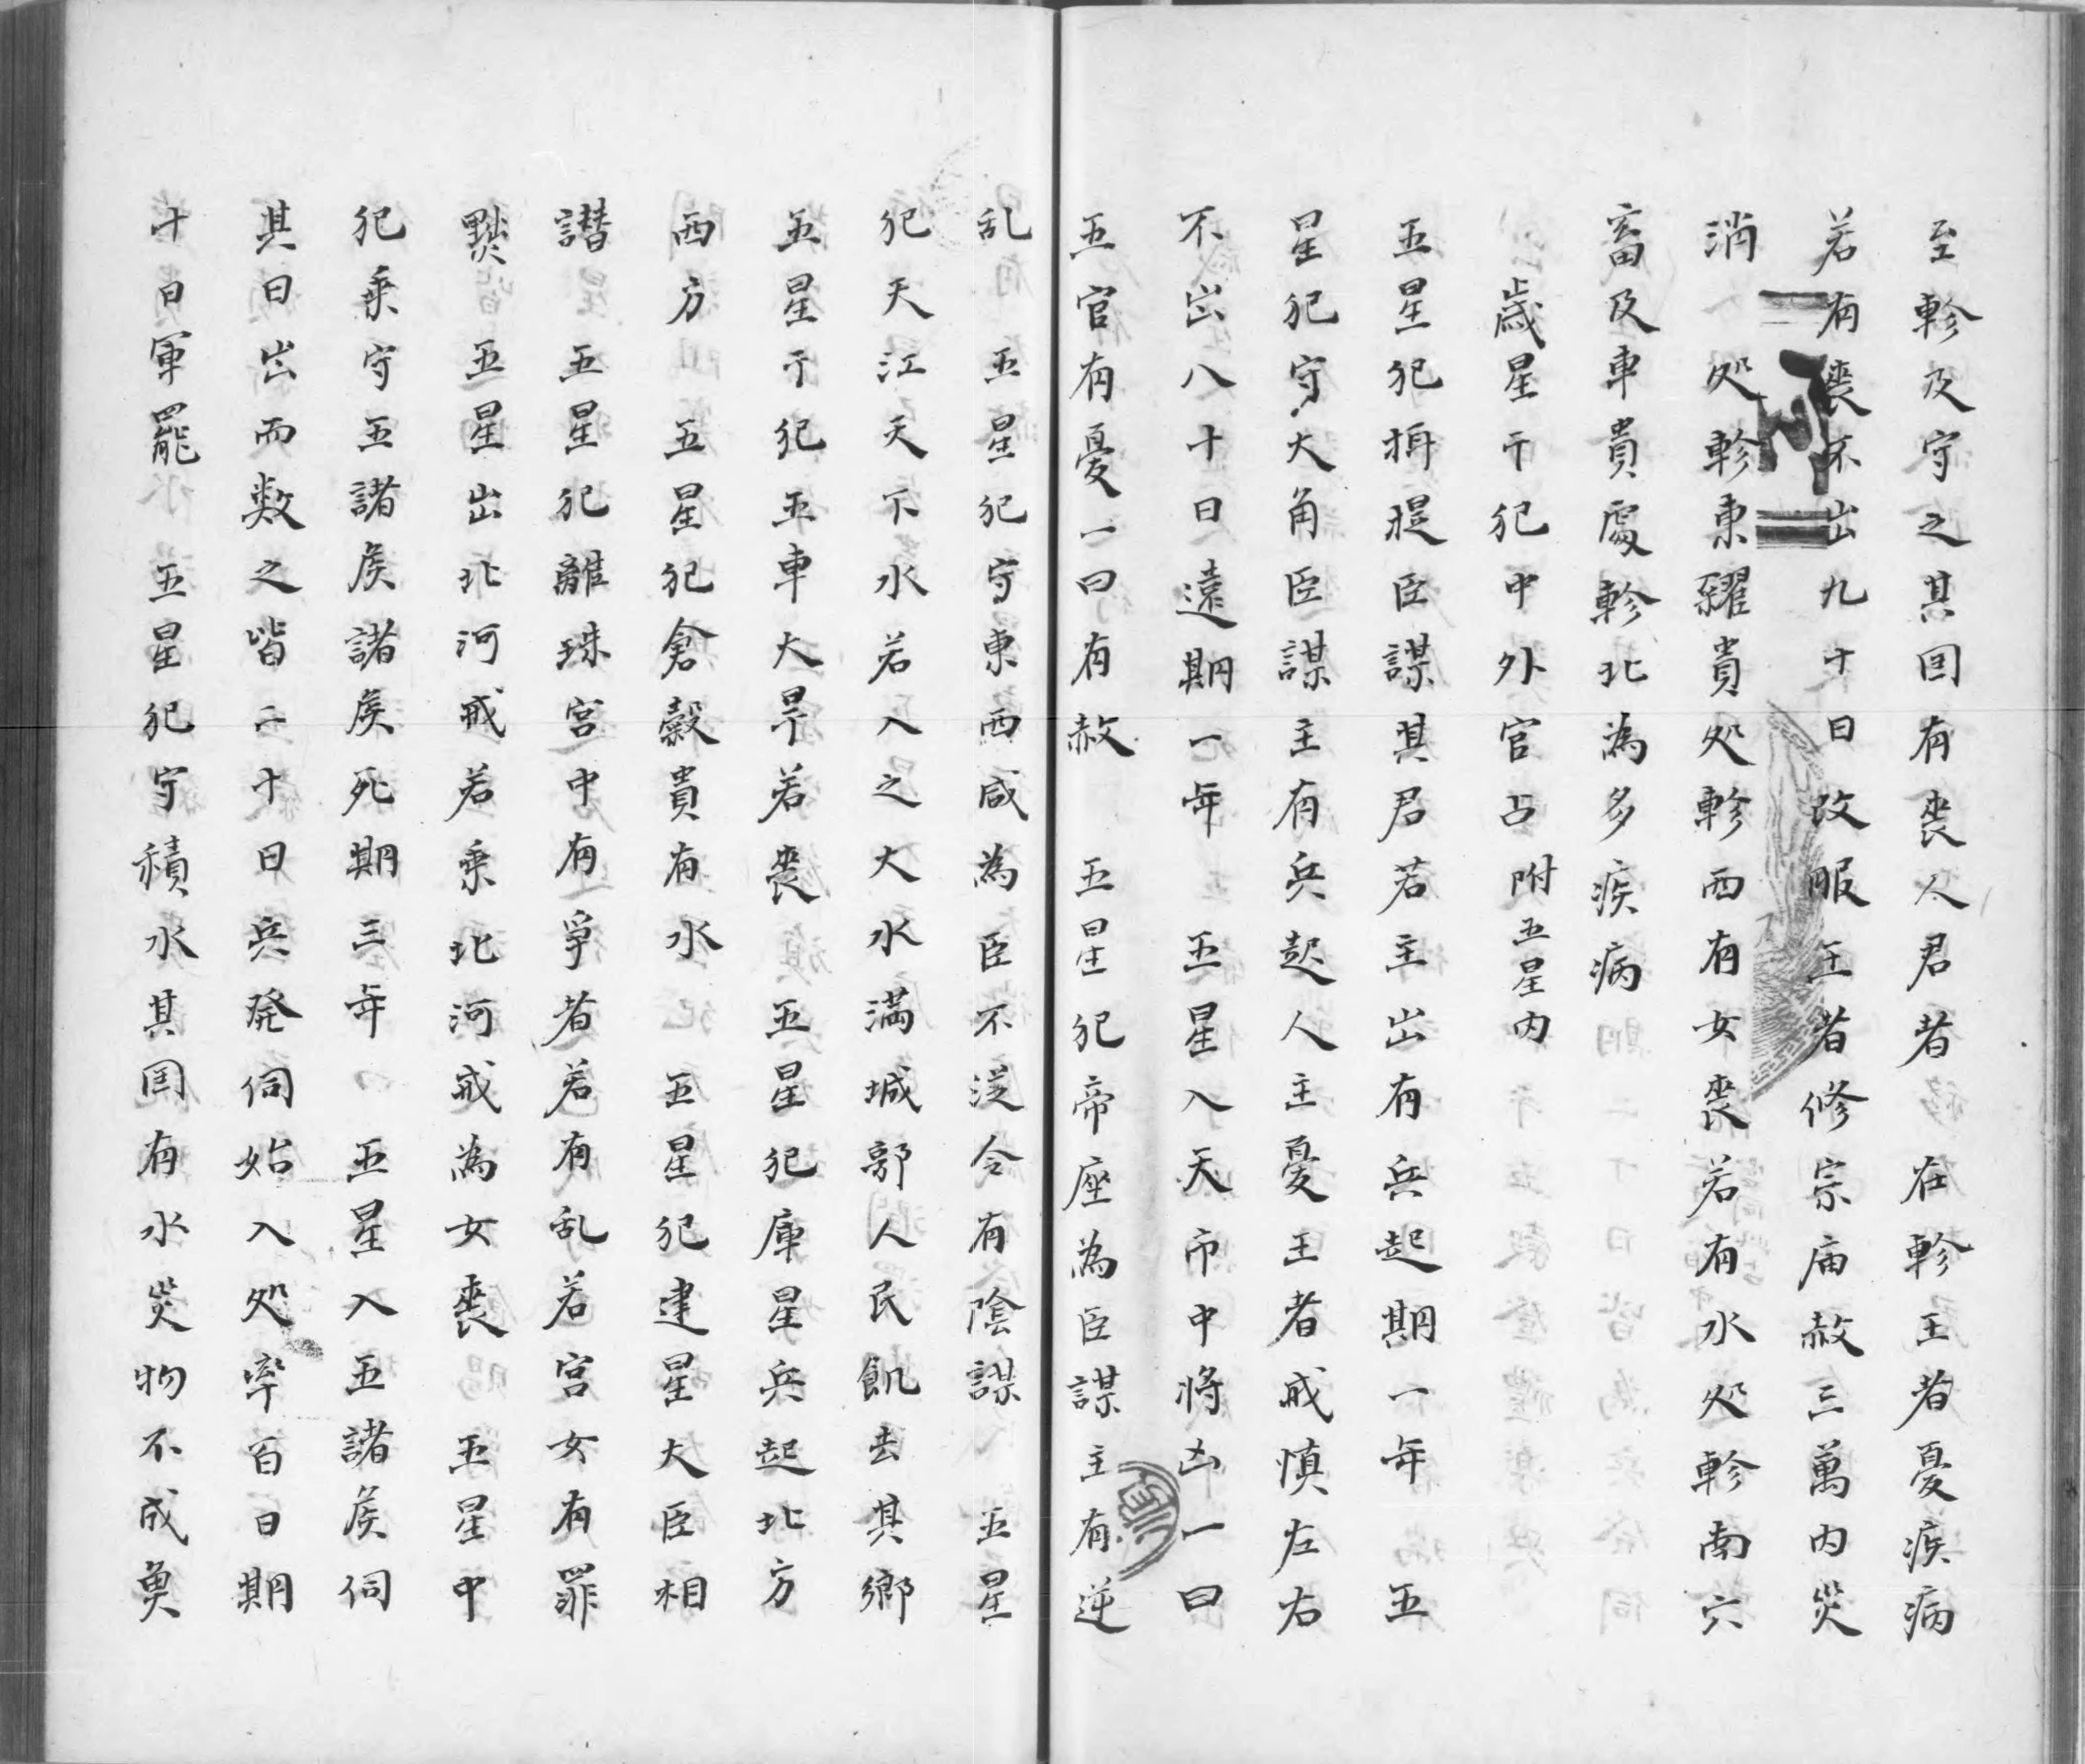 至軫及守之其囯有喪人君者在軫王者憂疾病
若有喪不出九十日改服王者修宗庙赦三萬内災
消処軫東糴貴処軫西有女喪若有水処軫南六
畜及車貴處軫北為多疾病
歲星干犯中外官占附五星内
五星犯摂提臣謀其君若主出有兵起期一年 五
星犯守大角臣謀主有兵起人主憂王者戒慎左右
不出八十日遠期一年 五星入天市中将凶一曰
五官有憂一曰有赦 五星犯帝座為臣謀主有逆
乱 五星犯守東西咸為臣不従令有陰謀 五星
犯天江天下水若入之大水満城郭人民飢去其郷
五星干犯五車大旱若喪 五星犯庫星兵起北方
西方 五星犯倉穀貴有水 五星犯建星大臣相
譖 五星犯離珠宮中有爭者若有乱若宮女有罪
黜 五星出北河戒若乗北河戒為女喪 五星中
犯乗守五諸侯諸侯死期三年 五星入五諸侯伺
其日出而数之皆二十日兵発伺始入処率百日期
十日軍罷 五星犯守積水其囯有水災物不成魚